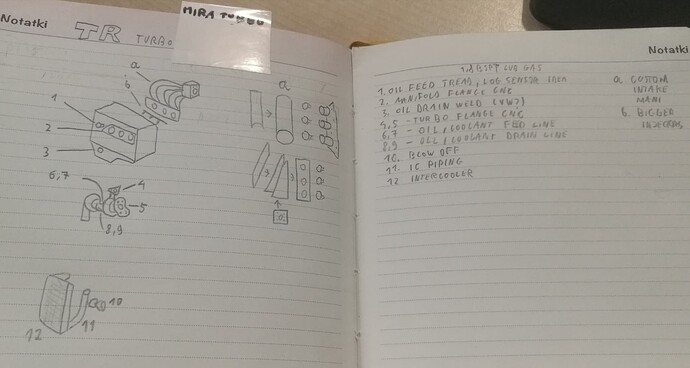 Notatki
TR TURBO
MIRA TURBO
a
b
1
2
3
a
6,7
4
5
8,9
10
11
12
Notatki
GAS
1. OIL FEED TREAD, LOG SENSOR IDEA
2. MANIFOLD FLANGE CNC
3. OIL DRAIN WELD
4,5 - TURBO FLANGE CNC
6,7 - OIL/COOLANT FEED LINE
8,9 - OIL/COOLANT DRAIN LINE
10. BLOW OFF
11. IC PIPING
12 INTERCOOLER
a. CUSTOM
INTAKE
MANI
b. BIGGER
INJECTORS